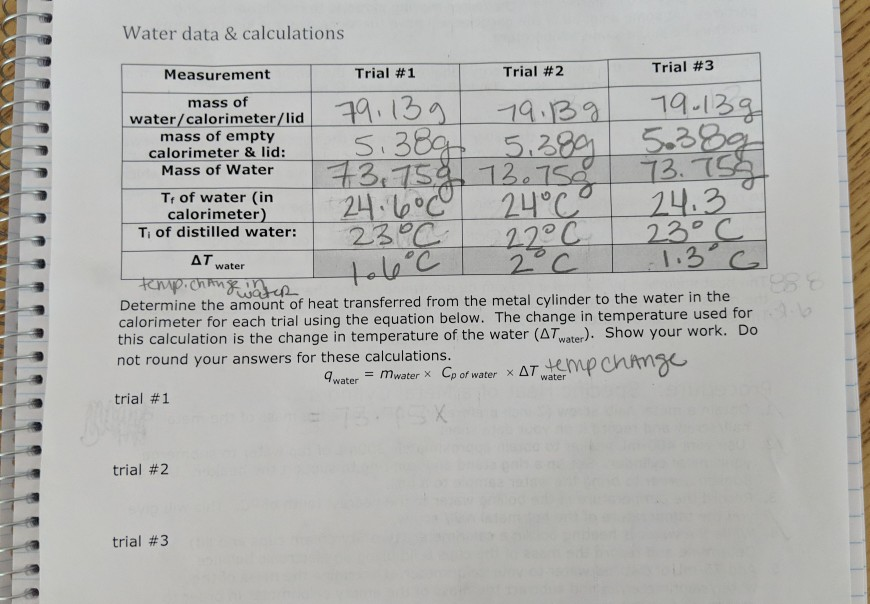 Water data & calculations
Measurement Trial #1 Trial #2 Trial #3
mass of water/calorimeter/lid 79.13g 79.13g 79.13g
mass of empty calorimeter & lid: 5.38g 5.38g 5.38g
Mass of Water 73.75g 73.75g 73.75g
Tf of water (in calorimeter) 24.6°C 24°C 24.3
Ti of distilled water: 23°C 22°C 23°C
ΔT water 1.6°C 2°C 1.3°C
temp. change in water
Determine the amount of heat transferred from the metal cylinder to the water in the
calorimeter for each trial using the equation below. The change in temperature used for
this calculation is the change in temperature of the water (ΔTwater). Show your work. Do
not round your answers for these calculations.
qwater = mwater x Cp of water x ΔT water temp change
trial #1
= 73.75 x
trial #2
trial #3